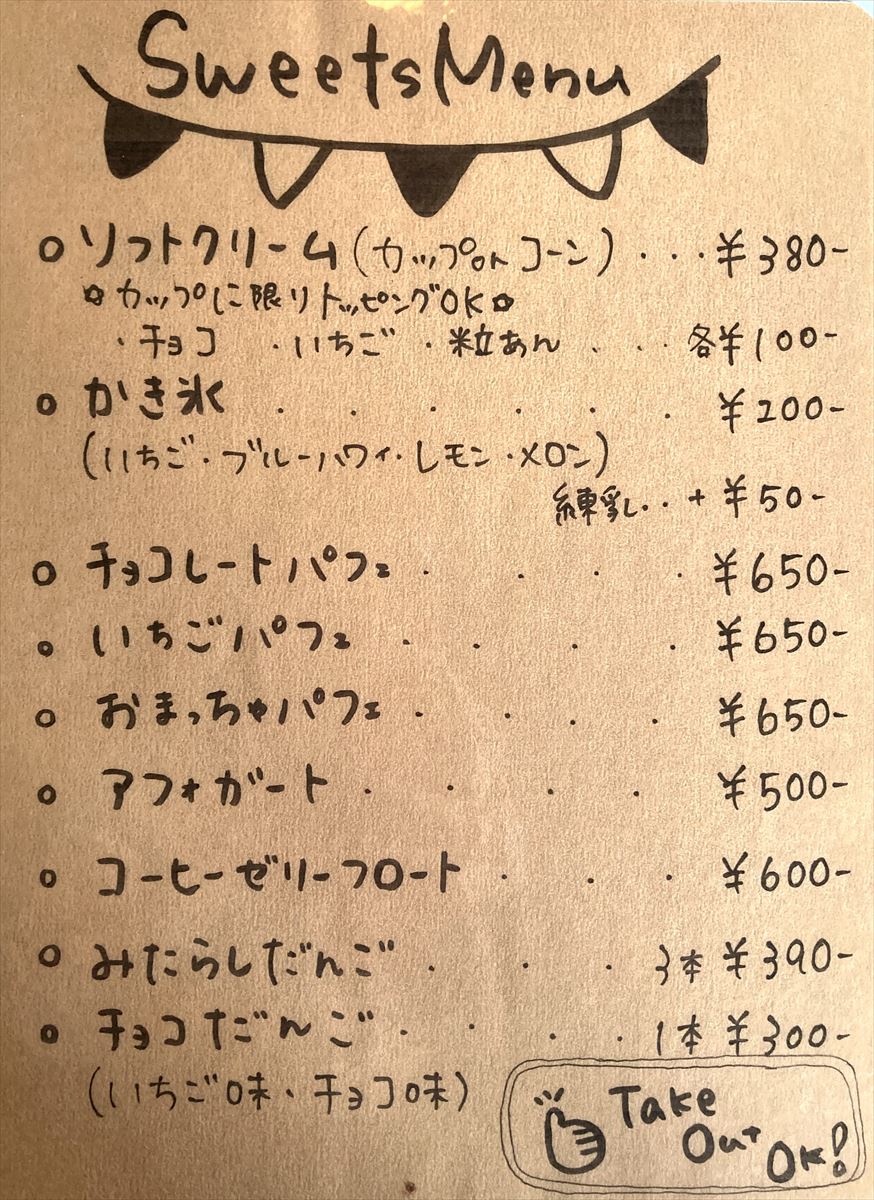 Sweets Menu
○ ソフトクリーム(カップorコーン)・・・¥380-
✿カップに限りトッピングOK✿
・チョコ ・いちご ・粒あん . . . 各¥100-
○ かき氷 . . . . . . ¥200-
(いちご・ブルーハワイ・レモン・メロン)
練乳・・+¥50-
○ チョコレートパフェ . . . . ¥650-
○ いちごパフェ . . . . ¥650-
○ おまっちゃパフェ . . . . ¥650-
○ アフォガート . . . . ¥500-
○ コーヒーゼリーフロート . . . ¥600-
○ みたらしだんご . . . 3本 ¥390-
○ チョコだんご . . . . 1本 ¥300-
(いちご味・チョコ味)
Take
Out
OK!